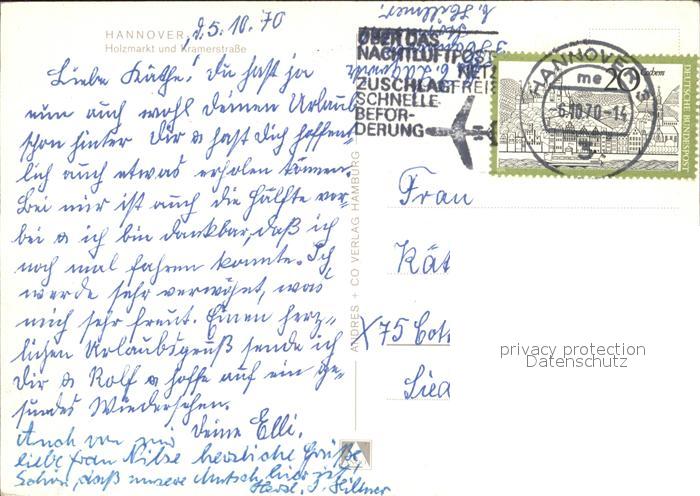 HANNOVER, d. 5.10.70
Holzmarkt und Kramerstraße
Liebe Käthe! Du hast ja
nun auch wohl Deinen Urlaub
schon hinter Dir u. hast Dich hoffent-
lich auch etwas erholen können.
Bei mir ist auch die Hälfte vor-
bei u. ich bin dankbar, daß ich
noch mal fahren konnte. Ich
werde sehr verwöhnt, was
mich sehr freut. Einen herz-
lichen Urlaubsgruß sende ich
Dir u. Rolf u. hoffe auf ein ge-
sundes Wiedersehen.
Deine Elli.
Auch von mir
liebe Frau Nilse herzliche Grüße
Schön, daß unsere Mutsch hier ist!
Herzl. I. Hillner
ANDRES + CO VERLAG HAMBURG
ÜBER DAS
NACHTLUFTPOST
NETZ
ZUSCHLAGFREI
SCHNELLE
BEFÖR-
DERUNG
HANNOVER
me
-6.10.70-14
3
20
Cochem
DEUTSCHE BUNDESPOST
Frau
Kät
X 75 Cott
privacy protection
Datenschutz